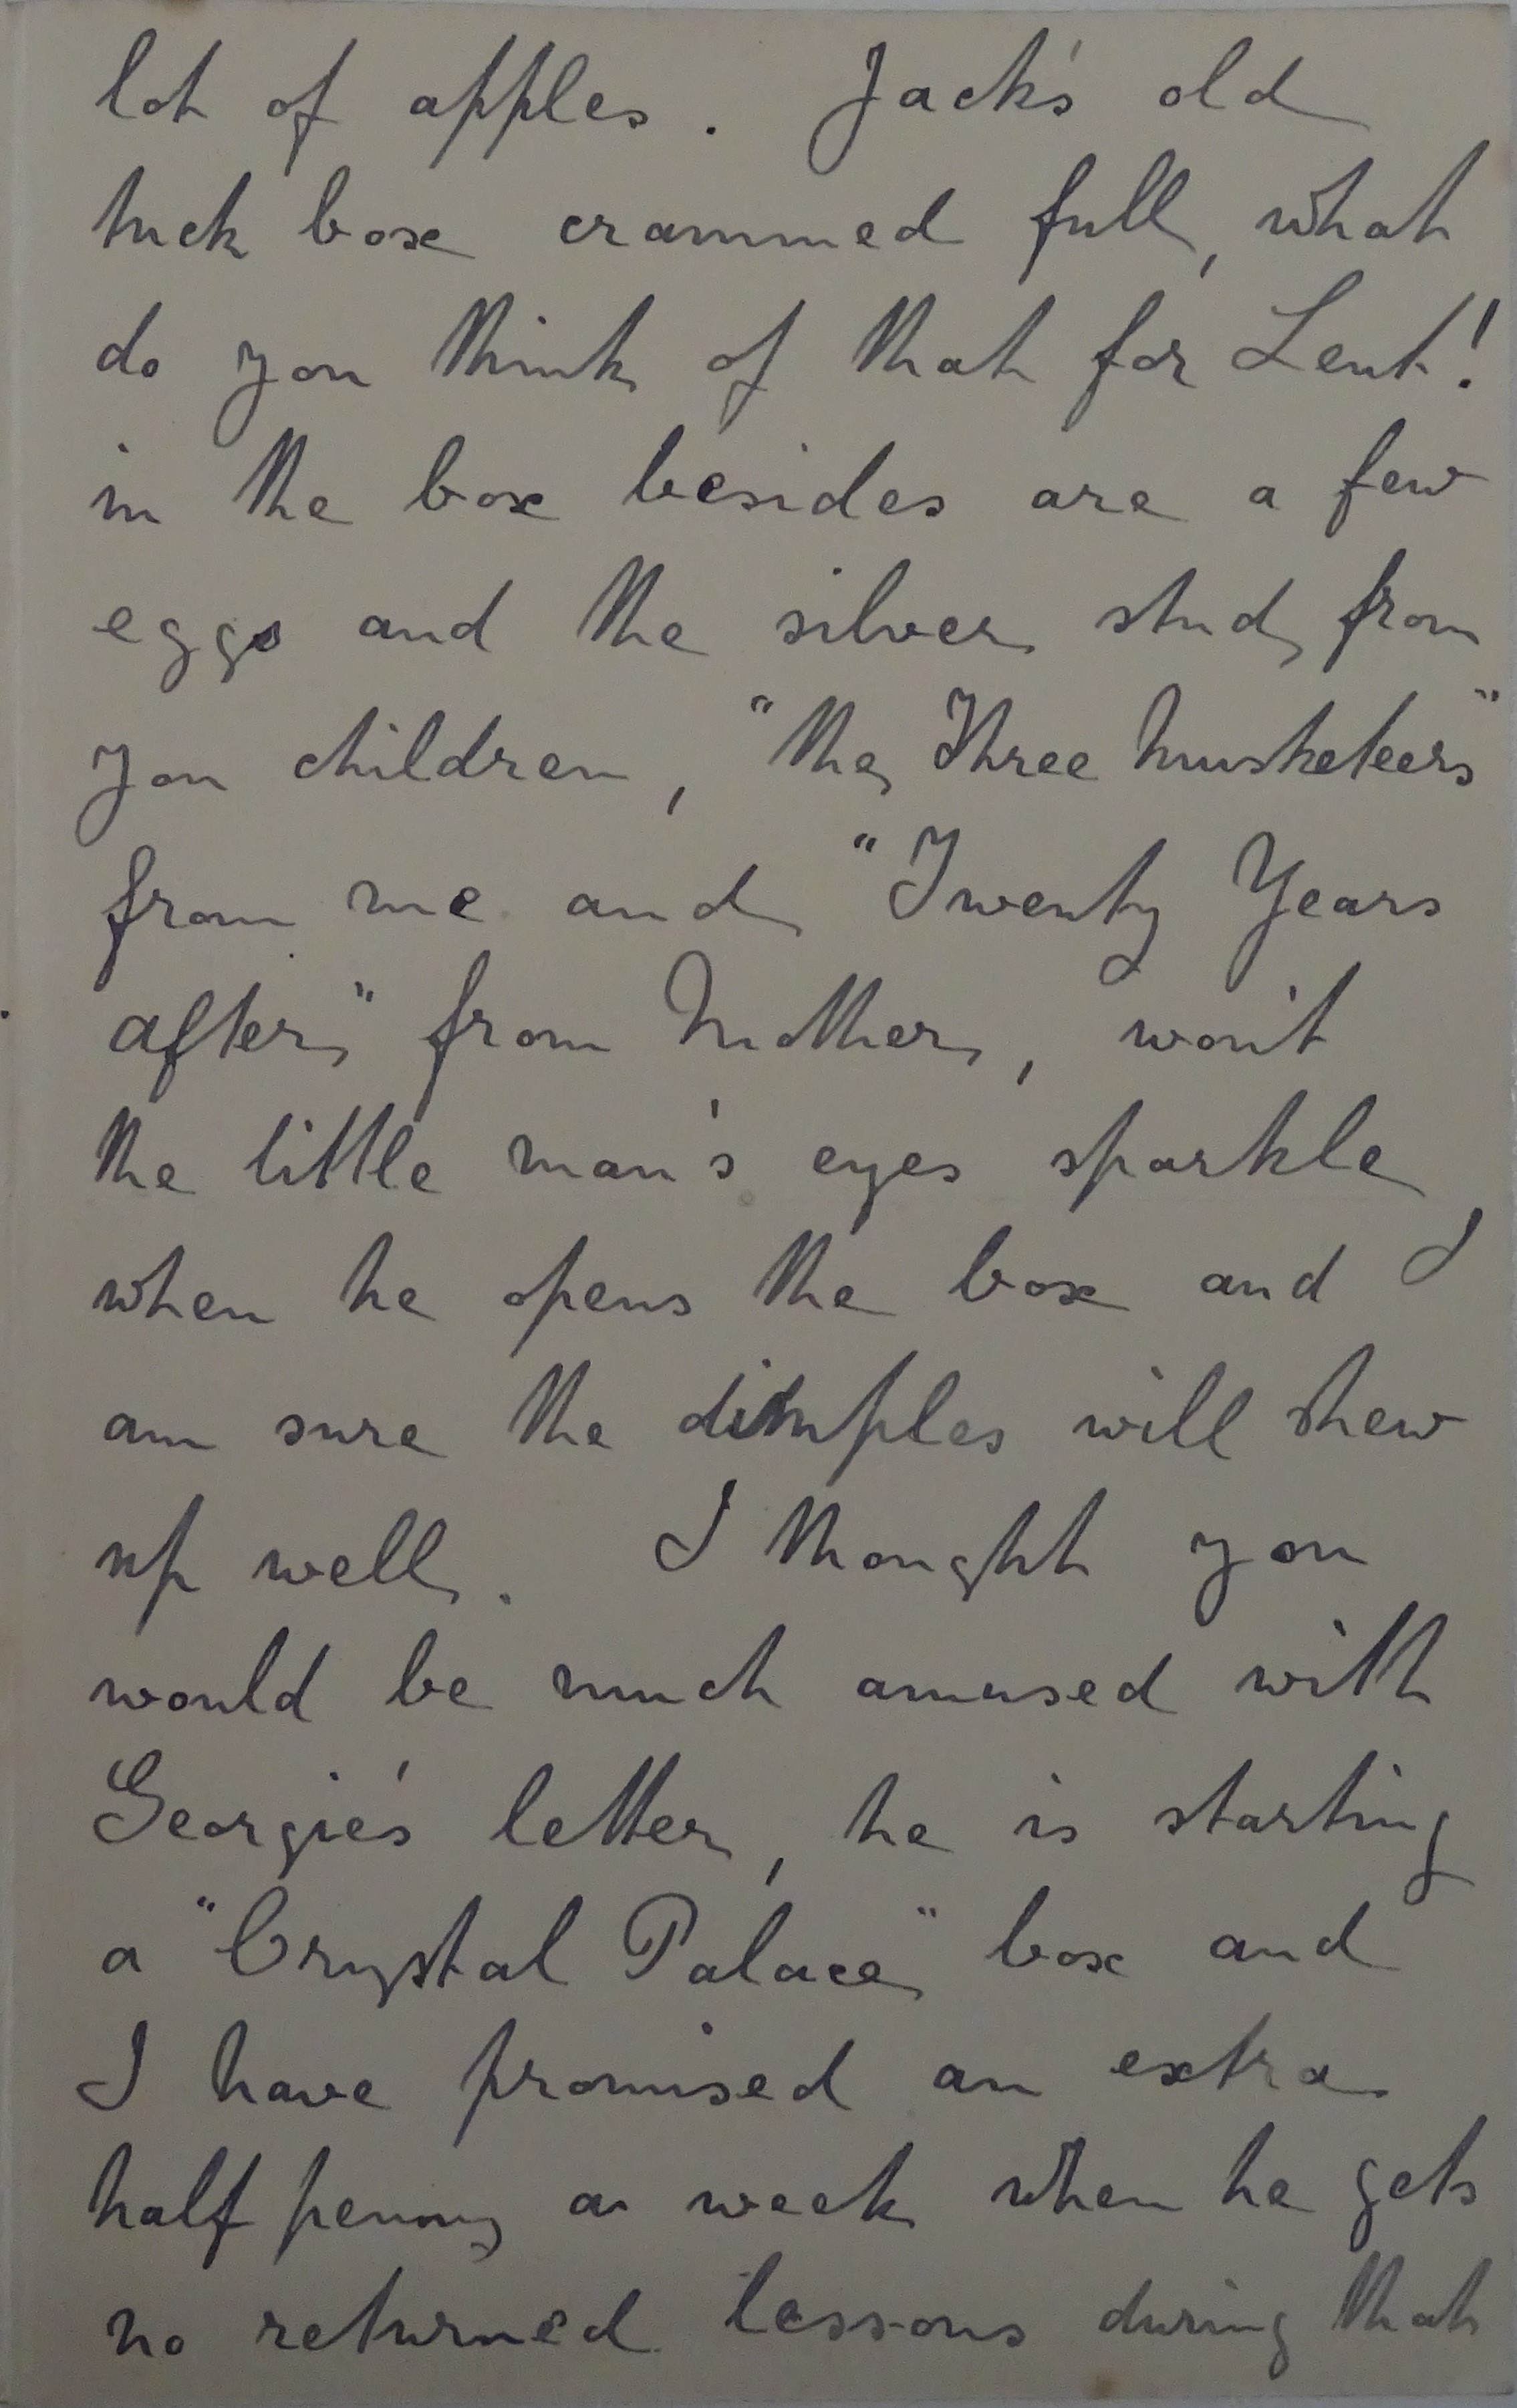 lot of apples. Jack's old
tuck box crammed full, what
do you think of that for Lent!
in the box besides are a few
eggs and the silver stud, from
you children, "The Three Musketeers"
from me and "Twenty Years
after" from Mother, won't
the little man's eyes sparkle
when he opens the box and I
am sure the dimples will shew
up well. I thought you
would be much amused with
Georgie's letter, he is starting
a "Crystal Palace" box and
I have promised an extra
half penny a week when he gets
no returned lessons during that